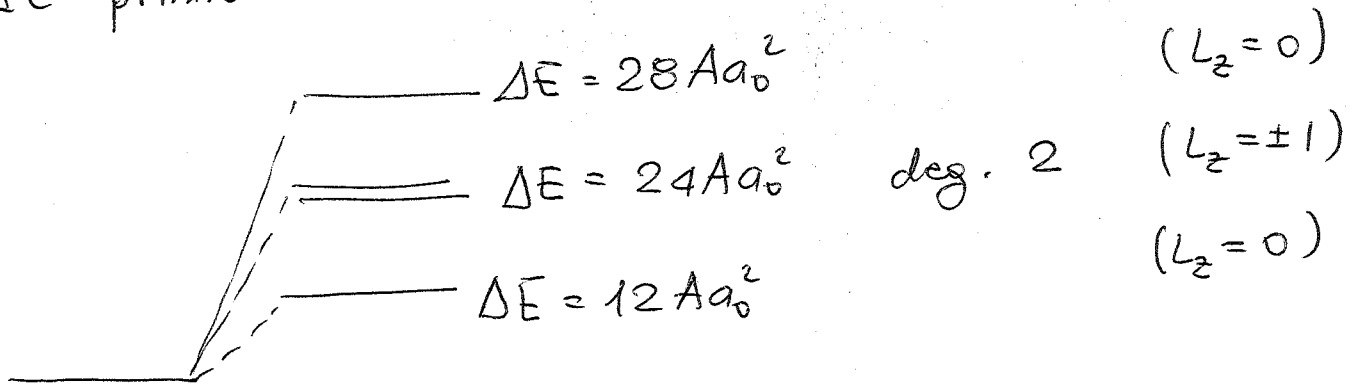 ΔE = 28 Aa₀² (L_z = 0)
ΔE = 24 Aa₀² deg. 2 (L_z = ± 1)
ΔE = 12 Aa₀² (L_z = 0)